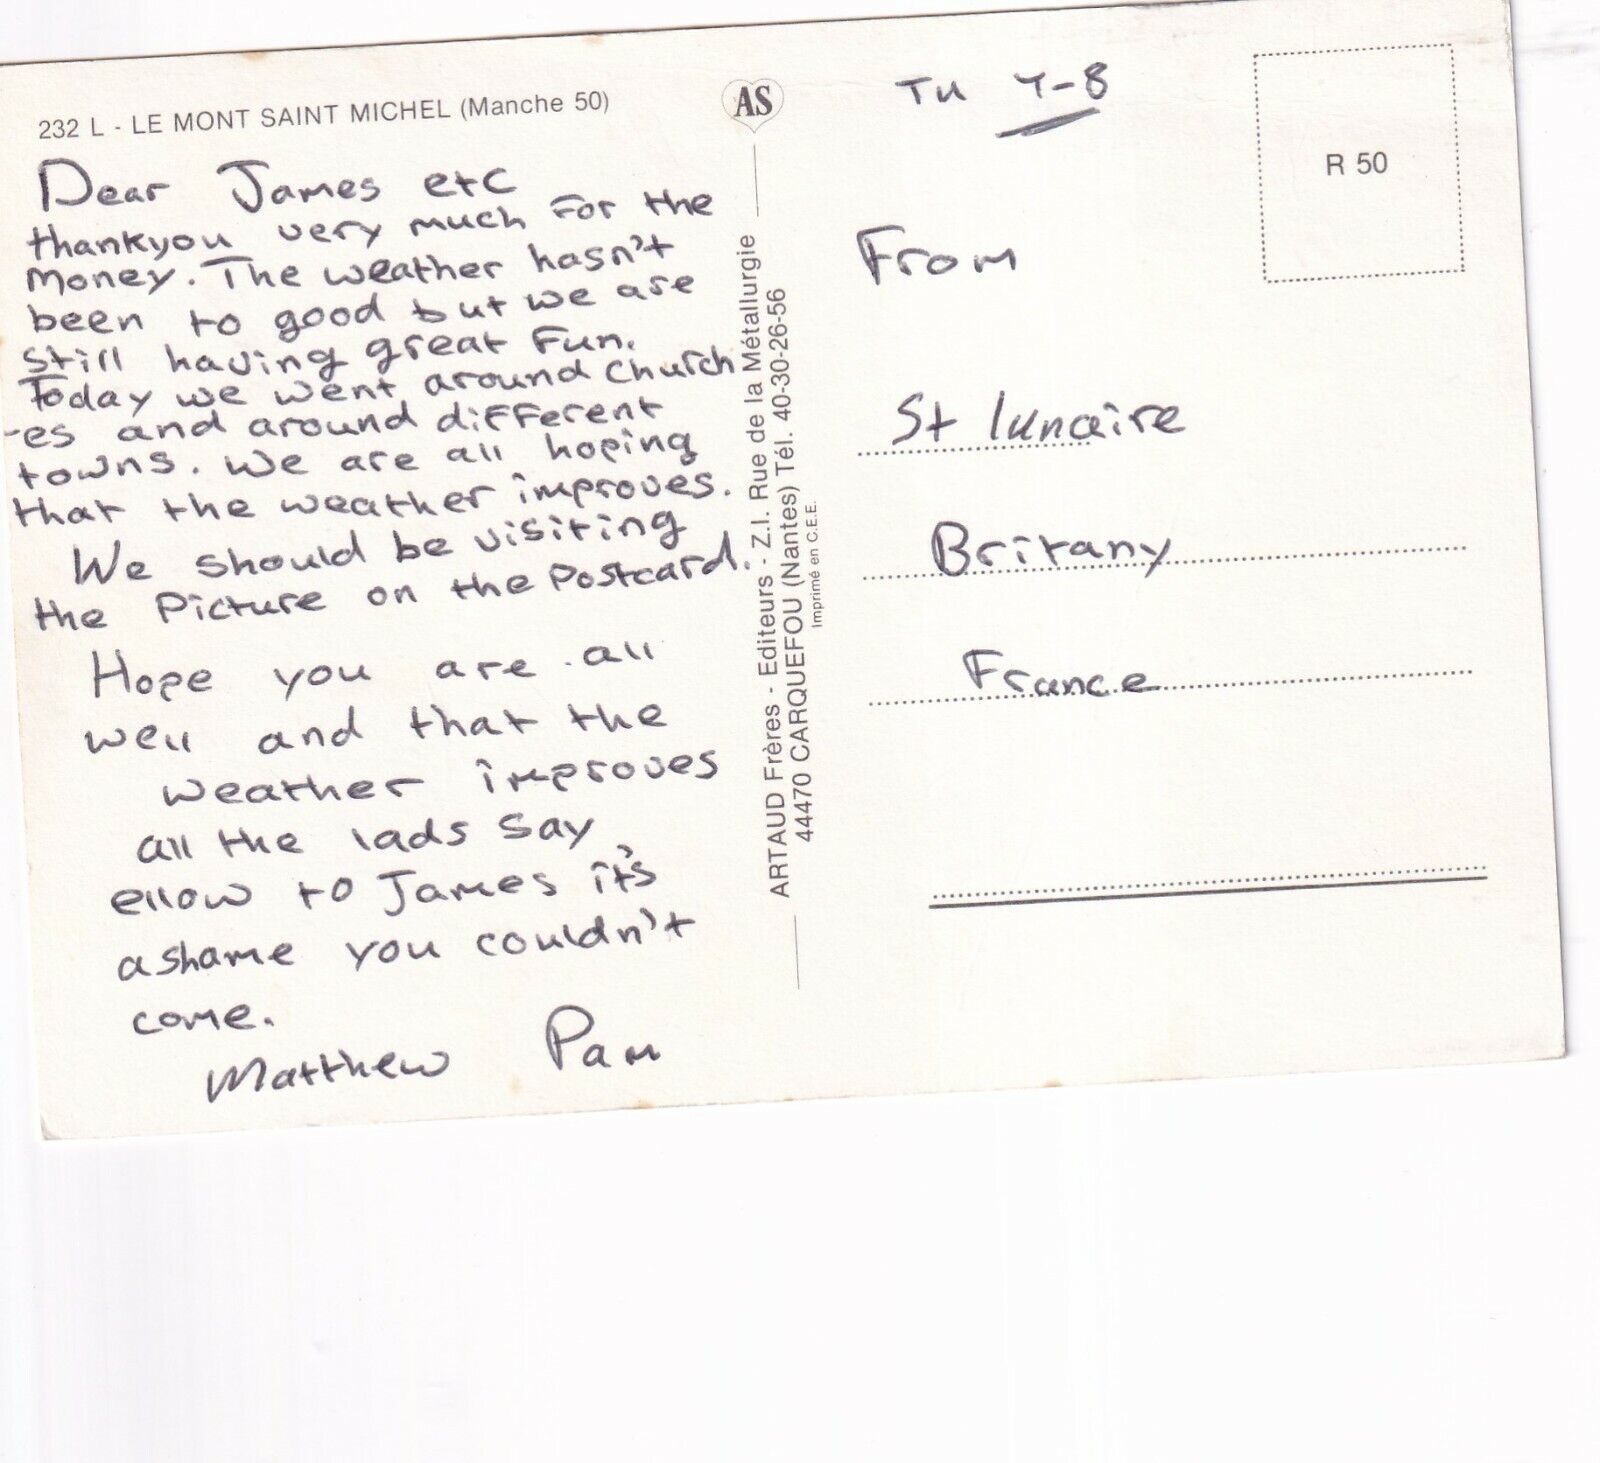 232 L - LE MONT SAINT MICHEL (Manche 50)
Dear James etc
thankyou very much for the
money. The weather hasn't
been to good but we are
still having great fun.
Today we went around church
-es and around different
towns. We are all hoping
that the weather improves.
We should be visiting
the Picture on the postcard.
Hope you are all
well and that the
weather improves
all the lads say
ellow to James it's
a shame you couldn't
come.
Matthew Pam
AS
ARTAUD Frères - Editeurs - Z.I. Rue de la Métallurgie
44470 CARQUEFOU (Nantes) Tél. 40-30-26-56
Imprimé en C.E.E.
Tu 4-8
R 50
From
St lunaire
Britany
France